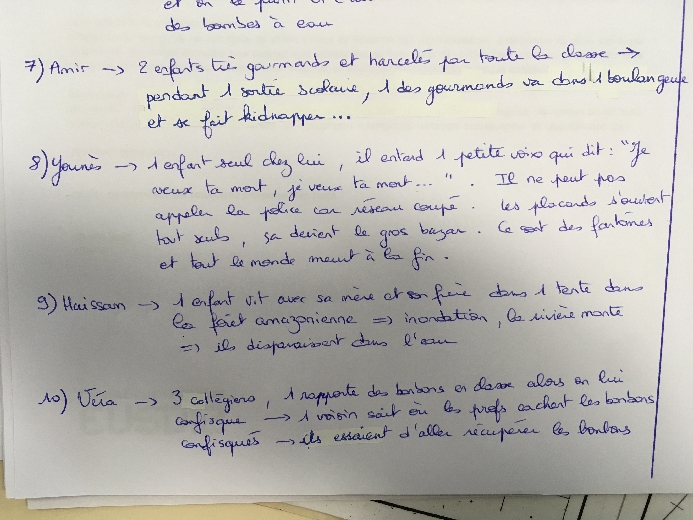 et on le
des bombes à eau
7) Amir → 2 enfants très gourmands et harcelés par toute la classe →
pendant 1 sortie scolaire, 1 des gourmands va dans 1 boulangerie
et se fait kidnapper...
8) Younès → 1 enfant seul chez lui, il entend 1 petite voix qui dit : "Je
veux ta mort, je veux ta mort...". Il ne peut pas
appeler la police car réseau coupé. Les placards s'ouvrent
tout seuls, ça devient le gros bazar. Ce sont des fantômes
et tout le monde meurt à la fin.
9) Haissam → 1 enfant vit avec sa mère et son frère dans 1 tente dans
la forêt amazonienne => inondation, la rivière monte
=> ils disparaissent dans l'eau
10) → 3 collégiens, 1 rapporte des bonbons en classe alors on lui
confisque → 1 voisin sait où les profs cachent les bonbons
confisqués → ils essaient d'aller récupérer les bonbons